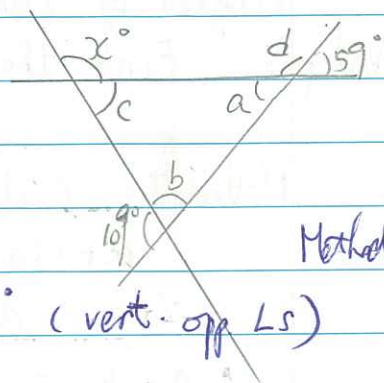 x°
d
59°
c
a
b
109°
Method
° (vert. opp Ls)